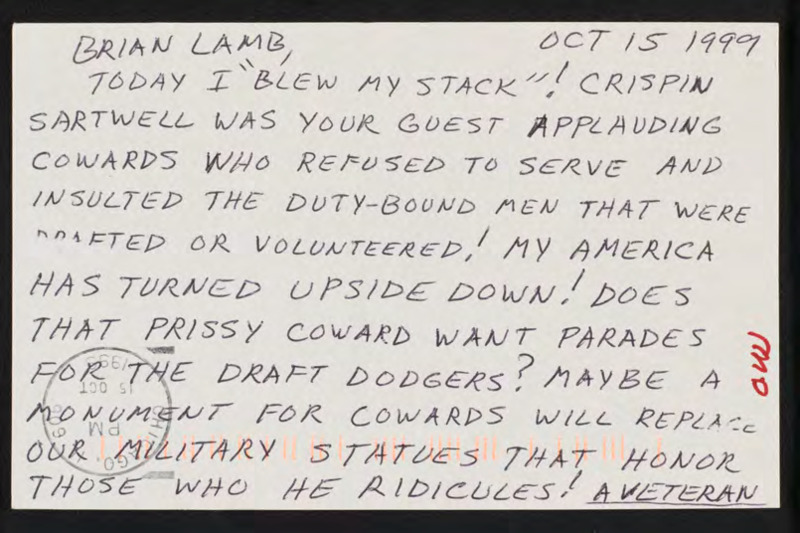 BRIAN LAMB, OCT 15 1999
TODAY I "BLEW MY STACK"! CRISPIN
SARTWELL WAS YOUR GUEST APPLAUDING
COWARDS WHO REFUSED TO SERVE AND
INSULTED THE DUTY-BOUND MEN THAT WERE
DRAFTED OR VOLUNTEERED! MY AMERICA
HAS TURNED UPSIDE DOWN! DOES
THAT PRISSY COWARD WANT PARADES
FOR THE DRAFT DODGERS? MAYBE A
MONUMENT FOR COWARDS WILL REPLACE
OUR MILITARY STATUES THAT HONOR
THOSE WHO HE RIDICULES! A VETERAN
CHICAGO,
PM
15 OCT
1999